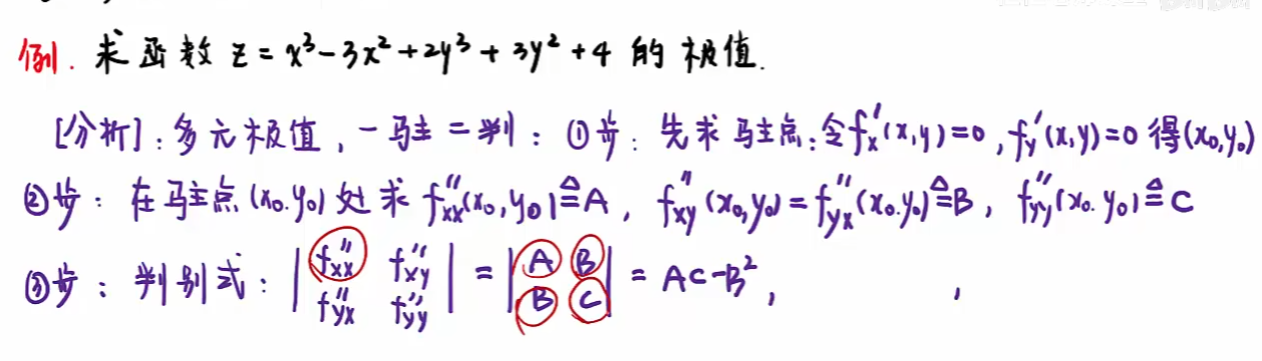 例. 求函数 z = x³ - 3x² + 2y³ + 3y² + 4 的极值.
[分析]: 多元极值, 一驻二判: ①步: 先求驻点: 令 f'x(x,y)=0, f'y(x,y)=0 得(x₀,y₀)
②步: 在驻点(x₀.y₀)处求 f''xx(x₀,y₀)≜A, f''xy(x₀,y₀)=f''yx(x₀.y₀)≜B, f''yy(x₀.y₀)≜C
③步: 判别式: | f''xx f''xy | = | A B | = AC-B²,  ,
| f''yx f''yy | | B C |